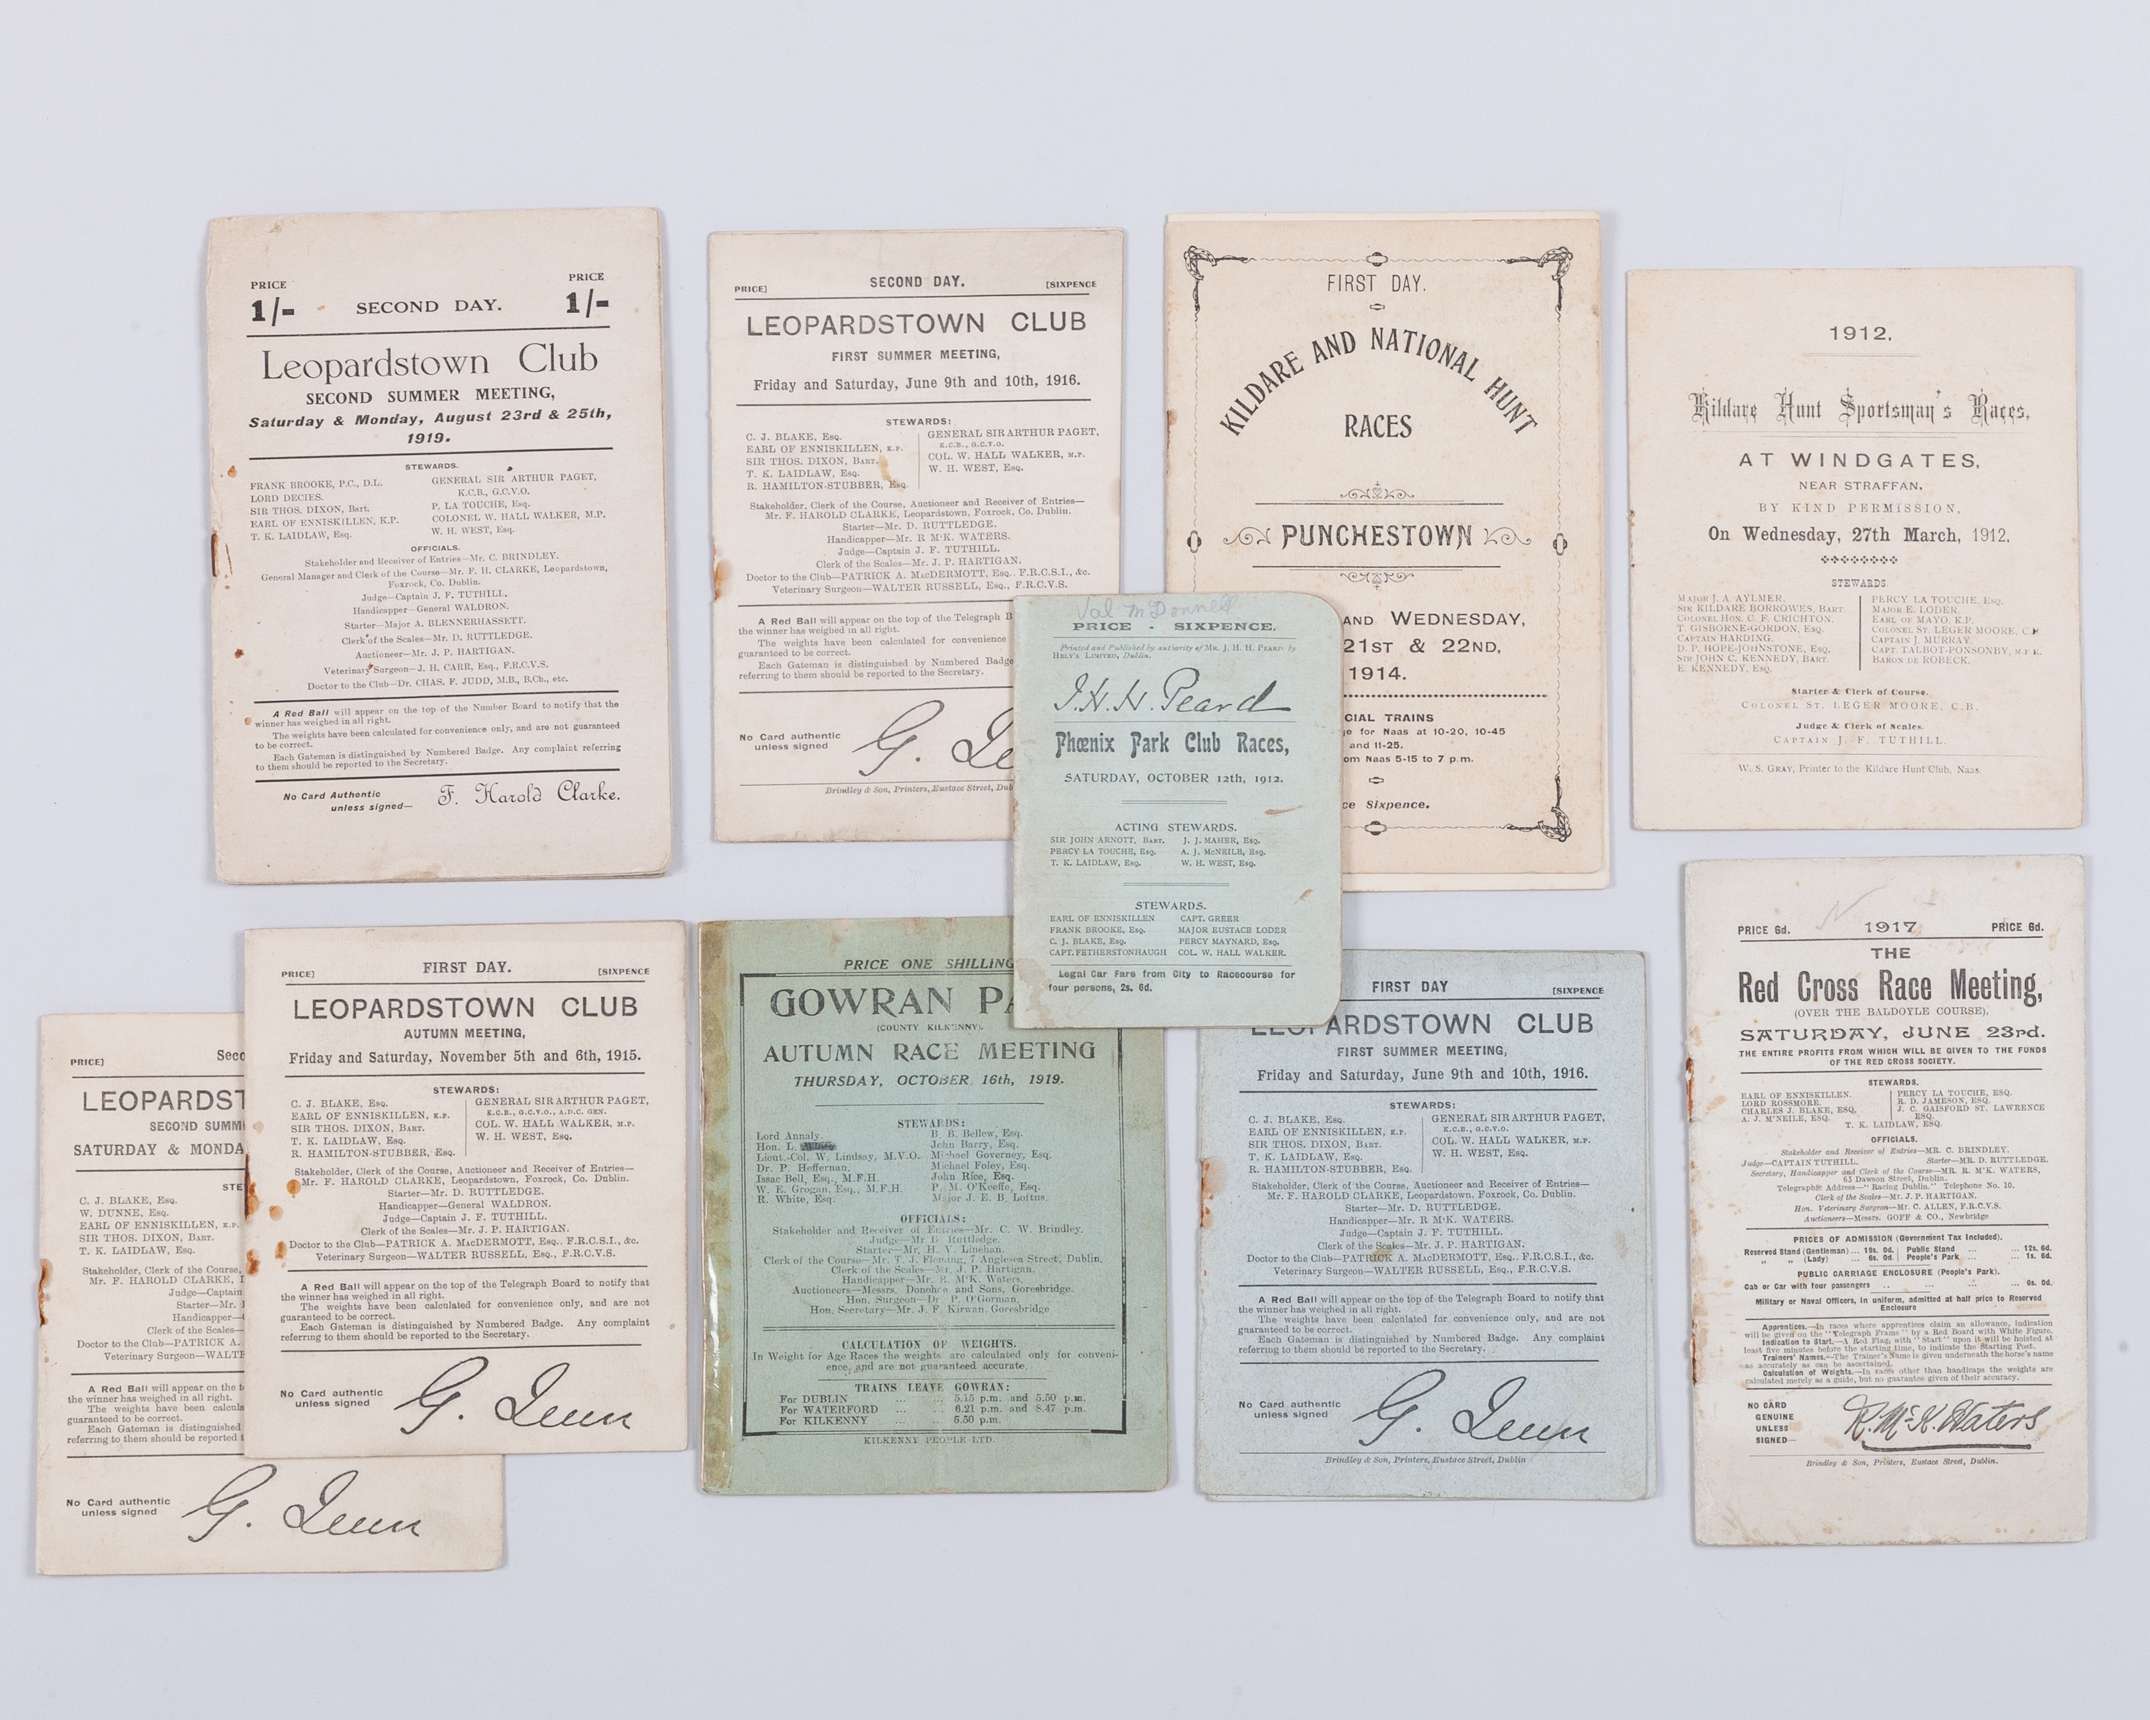 PRICE PRICE
1/- SECOND DAY. 1/-
Leopardstown Club
SECOND SUMMER MEETING,
Saturday & Monday, August 23rd & 25th,
1919.
STEWARDS.
FRANK BROOKE, P.C., D.L.
LORD DECIES.
SIR THOS. DIXON, Bart.
EARL OF ENNISKILLEN, K.P.
T. K. LAIDLAW, Esq.
GENERAL SIR ARTHUR PAGET,
K.C.B., G.C.V.O.
P. LA TOUCHE, Esq.
COLONEL W. HALL WALKER, M.P.
W. H. WEST, Esq.
OFFICIALS.
Stakeholder and Receiver of Entries—Mr. C. BRINDLEY.
General Manager and Clerk of the Course—Mr. F. H. CLARKE, Leopardstown,
Foxrock, Co. Dublin.
Judge—Captain J. F. TUTHILL.
Handicapper—General WALDRON.
Starter—Major A. BLENNERHASSETT.
Clerk of the Scales—Mr. D. RUTTLEDGE.
Auctioneer—Mr. J. P. HARTIGAN.
Veterinary Surgeon—J. H. CARR, Esq., F.R.C.V.S.
Doctor to the Club—Dr. CHAS. F. JUDD, M.B., B.Ch., etc.
A Red Ball will appear on the top of the Number Board to notify that the
winner has weighed in all right.
The weights have been calculated for convenience only, and are not guaranteed
to be correct.
Each Gateman is distinguished by Numbered Badge. Any complaint referring
to them should be reported to the Secretary.
No Card Authentic
unless signed— F. Harold Clarke.
PRICE] SECOND DAY. [SIXPENCE
LEOPARDSTOWN CLUB
FIRST SUMMER MEETING,
Friday and Saturday, June 9th and 10th, 1916.
STEWARDS:
C. J. BLAKE, Esq.
EARL OF ENNISKILLEN, K.P.
SIR THOS. DIXON, Bart.
T. K. LAIDLAW, Esq.
R. HAMILTON-STUBBER, Esq.
GENERAL SIR ARTHUR PAGET,
K.C.B., G.C.V.O.
COL. W. HALL WALKER, M.P.
W. H. WEST, Esq.
Stakeholder, Clerk of the Course, Auctioneer and Receiver of Entries—
Mr. F. HAROLD CLARKE, Leopardstown, Foxrock, Co. Dublin.
Starter—Mr. D. RUTTLEDGE.
Handicapper—Mr. R McK. WATERS.
Judge—Captain J. F. TUTHILL.
Clerk of the Scales—Mr. J. P. HARTIGAN.
Doctor to the Club—PATRICK A. MacDERMOTT, Esq., F.R.C.S.I., &c.
Veterinary Surgeon—WALTER RUSSELL, Esq., F.R.C.V.S.
A Red Ball will appear on the top of the Telegraph B
the winner has weighed in all right.
The weights have been calculated for convenience
guaranteed to be correct.
Each Gateman is distinguished by Numbered Badge
referring to them should be reported to the Secretary.
No Card authentic
unless signed
Brindley & Son, Printers, Eustace Street, Dub
FIRST DAY.
KILDARE AND NATIONAL HUNT
RACES
PUNCHESTOWN
AND WEDNESDAY,
21ST & 22ND,
1914.
CIAL TRAINS
ge for Naas at 10-20, 10-45
and 11-25.
om Naas 5-15 to 7 p.m.
ce Sixpence.
1912.
Kildare Hunt Sportsman's Races,
AT WINDGATES,
NEAR STRAFFAN,
BY KIND PERMISSION,
On Wednesday, 27th March, 1912.
STEWARDS
Major J. A. AYLMER.
Sir KILDARE BORROWES, Bart.
Colonel Hon. C. F. CRICHTON.
T. GISBORNE-GORDON, Esq.
Captain HARDING.
D. P. HOPE-JOHNSTONE, Esq.
Sir JOHN C. KENNEDY, Bart.
E. KENNEDY, Esq.
PERCY LA TOUCHE, Esq.
Major E. LODER.
Earl of MAYO, K.P.
Colonel St. LEGER MOORE,
Captain J. MURRAY.
Capt. TALBOT-PONSONBY,
Baron de ROBECK.
Starter & Clerk of Course.
Colonel St. LEGER MOORE, C.B.
Judge & Clerk of Scales.
Captain J. F. TUTHILL.
W. S. Gray, Printer to the Kildare Hunt Club, Naas.
Val McDonnell
PRICE - SIXPENCE.
Printed and Published by authority of Mr. J. H. H. Peard by
Hely's Limited, Dublin.
J. H. H. Peard
Phœnix Park Club Races,
SATURDAY, OCTOBER 12th, 1912.
ACTING STEWARDS.
SIR JOHN ARNOTT, Bart. J. J. MAHER, Esq.
PERCY LA TOUCHE, Esq. A. J. McNEILE, Esq.
T. K. LAIDLAW, Esq. W. H. WEST, Esq.
STEWARDS.
EARL OF ENNISKILLEN CAPT. GREER
FRANK BROOKE, Esq. MAJOR EUSTACE LODER
C. J. BLAKE, Esq. PERCY MAYNARD, Esq.
CAPT. FETHERSTONHAUGH COL. W. HALL WALKER.
Legal Car Fare from City to Racecourse for
four persons, 2s. 6d.
PRICE] Seco
LEOPARDST
SECOND SUMM
SATURDAY & MONDA
STE
C. J. BLAKE, Esq.
W. DUNNE, Esq.
EARL OF ENNISKILLEN, K.P.
SIR THOS. DIXON, Bart.
T. K. LAIDLAW, Esq.
Stakeholder, Clerk of the Course,
Mr. F. HAROLD CLARKE,
Judge—Captain
Starter—Mr.
Handicapper—
Clerk of the Scales—
Doctor to the Club—PATRICK A.
Veterinary Surgeon—WALTE
A Red Ball will appear on the t
the winner has weighed in all right.
The weights have been calcula
guaranteed to be correct.
Each Gateman is distinguished
referring to them should be reported t
No Card authentic
unless signed
PRICE] FIRST DAY. [SIXPENCE
LEOPARDSTOWN CLUB
AUTUMN MEETING,
Friday and Saturday, November 5th and 6th, 1915.
STEWARDS:
C. J. BLAKE, Esq.
EARL OF ENNISKILLEN, K.P.
SIR THOS. DIXON, Bart.
T. K. LAIDLAW, Esq.
R. HAMILTON-STUBBER, Esq.
GENERAL SIR ARTHUR PAGET,
K.C.B., G.C.V.O., A.D.C. GEN.
COL. W. HALL WALKER, M.P.
W. H. WEST, Esq.
Stakeholder, Clerk of the Course, Auctioneer and Receiver of Entries—
Mr. F. HAROLD CLARKE, Leopardstown, Foxrock, Co. Dublin.
Starter—Mr. D. RUTTLEDGE.
Handicapper—General WALDRON.
Judge—Captain J. F. TUTHILL.
Clerk of the Scales—Mr. J. P. HARTIGAN.
Doctor to the Club—PATRICK A. MacDERMOTT, Esq., F.R.C.S.I., &c.
Veterinary Surgeon—WALTER RUSSELL, Esq., F.R.C.V.S.
A Red Ball will appear on the top of the Telegraph Board to notify that
the winner has weighed in all right.
The weights have been calculated for convenience only, and are not
guaranteed to be correct.
Each Gateman is distinguished by Numbered Badge. Any complaint
referring to them should be reported to the Secretary.
No Card authentic
unless signed
PRICE ONE SHILLING
GOWRAN PA
(COUNTY KILKENNY).
AUTUMN RACE MEETING
THURSDAY, OCTOBER 16th, 1919.
STEWARDS:
Lord Annaly.
Hon. L.
Lieut.-Col. W. Lindsay, M.V.O.
Dr. P. Heffernan.
Issac Bell, Esq., M.F.H.
W. E. Grogan, Esq., M.F.H.
R. White, Esq.
B. B. Bellew, Esq.
John Barry, Esq.
Michael Governey, Esq.
Michael Foley, Esq.
John Rice, Esq.
P. M. O'Keeffe, Esq.
Major J. E. B. Loftus.
OFFICIALS:
Stakeholder and Receiver of Entries—Mr. C. W. Brindley.
Judge—Mr D. Ruttledge.
Starter—Mr. H. V. Linehan.
Clerk of the Course—Mr. T. J. Fleming, 7 Anglesea Street, Dublin.
Clerk of the Scales—Mr. J. P. Hartigan.
Handicapper—Mr. R. McK. Waters.
Auctioneers—Messrs. Donohoe and Sons, Goresbridge.
Hon. Surgeon—Dr P. O'Gorman.
Hon. Secretary—Mr. J. F. Kirwan, Goresbridge
CALCULATION OF WEIGHTS.
In Weight for Age Races the weights are calculated only for conveni-
ence, and are not guaranteed accurate.
TRAINS LEAVE GOWRAN:
For DUBLIN ... ... 5.15 p.m. and 5.50 p.m.
For WATERFORD ... ... 6.21 p.m. and 8.47 p.m.
For KILKENNY ... ... 5.50 p.m.
KILKENNY PEOPLE LTD.
FIRST DAY [SIXPENCE
LEOPARDSTOWN CLUB
FIRST SUMMER MEETING,
Friday and Saturday, June 9th and 10th, 1916.
STEWARDS:
C. J. BLAKE, Esq.
EARL OF ENNISKILLEN, K.P.
SIR THOS. DIXON, Bart.
T. K. LAIDLAW, Esq.
R. HAMILTON-STUBBER, Esq.
GENERAL SIR ARTHUR PAGET,
K.C.B., G.C.V.O.
COL. W. HALL WALKER, M.P.
W. H. WEST, Esq.
Stakeholder, Clerk of the Course, Auctioneer and Receiver of Entries—
Mr. F. HAROLD CLARKE, Leopardstown, Foxrock, Co. Dublin.
Starter—Mr. D. RUTTLEDGE.
Handicapper—Mr. R McK. WATERS.
Judge—Captain J. F. TUTHILL.
Clerk of the Scales—Mr. J. P. HARTIGAN.
Doctor to the Club—PATRICK A. MacDERMOTT, Esq., F.R.C.S.I., &c.
Veterinary Surgeon—WALTER RUSSELL, Esq., F.R.C.V.S.
A Red Ball will appear on the top of the Telegraph Board to notify that
the winner has weighed in all right.
The weights have been calculated for convenience only, and are not
guaranteed to be correct.
Each Gateman is distinguished by Numbered Badge. Any complaint
referring to them should be reported to the Secretary.
No Card authentic
unless signed
Brindley & Son, Printers, Eustace Street, Dublin
PRICE 6d. 1917 PRICE 6d.
THE
Red Cross Race Meeting,
(OVER THE BALDOYLE COURSE),
SATURDAY, JUNE 23rd.
THE ENTIRE PROFITS FROM WHICH WILL BE GIVEN TO THE FUNDS
OF THE RED CROSS SOCIETY.
STEWARDS.
EARL OF ENNISKILLEN.
LORD ROSSMORE.
CHARLES J. BLAKE, ESQ.
A. J. M'NEILE, ESQ.
PERCY LA TOUCHE, ESQ.
R. D. JAMESON, ESQ.
J. C. GAISFORD ST. LAWRENCE
ESQ.
T. K. LAIDLAW, ESQ.
OFFICIALS.
Stakeholder and Receiver of Entries—MR. C. BRINDLEY.
Judge—CAPTAIN TUTHILL. Starter—MR. D. RUTTLEDGE.
Secretary, Handicapper and Clerk of the Course—MR. R. M'K. WATERS,
63 Dawson Street, Dublin.
Telegraphic Address—"Racing Dublin." Telephone No. 10.
Clerk of the Scales—Mr. J. P. HARTIGAN.
Hon. Veterinary Surgeon—Mr. C. ALLEN, F.R.C.V.S.
Auctioneers—Messrs. GOFF & CO., Newbridge
PRICES OF ADMISSION (Government Tax Included).
Reserved Stand (Gentleman) ... 19s. 0d. | Public Stand ... ... 12s. 6d.
„ „ (Lady) ... 6s. 0d. | People's Park ... ... 1s. 6d.
PUBLIC CARRIAGE ENCLOSURE (People's Park).
Cab or Car with four passengers ... ... ... 6s. 0d.
Military or Naval Officers, in uniform, admitted at half price to Reserved
Enclosure
Apprentices.—In races where apprentices claim an allowance, indication
will be given on the "Telegraph Frame" by a Red Board with White Figure.
Indication to Start.—A Red Flag, with "Start" upon it will be hoisted at
least five minutes before the starting time, to indicate the Starting Post.
Trainers' Names.—The Trainer's Name is given underneath the horse's name
as accurately as can be ascertained.
Calculation of Weights.—In races other than handicaps the weights are
calculated merely as a guide, but no guarantee given of their accuracy.
NO CARD
GENUINE
UNLESS
SIGNED—
R. McK. Waters
Brindley & Son, Printers, Eustace Street, Dublin.